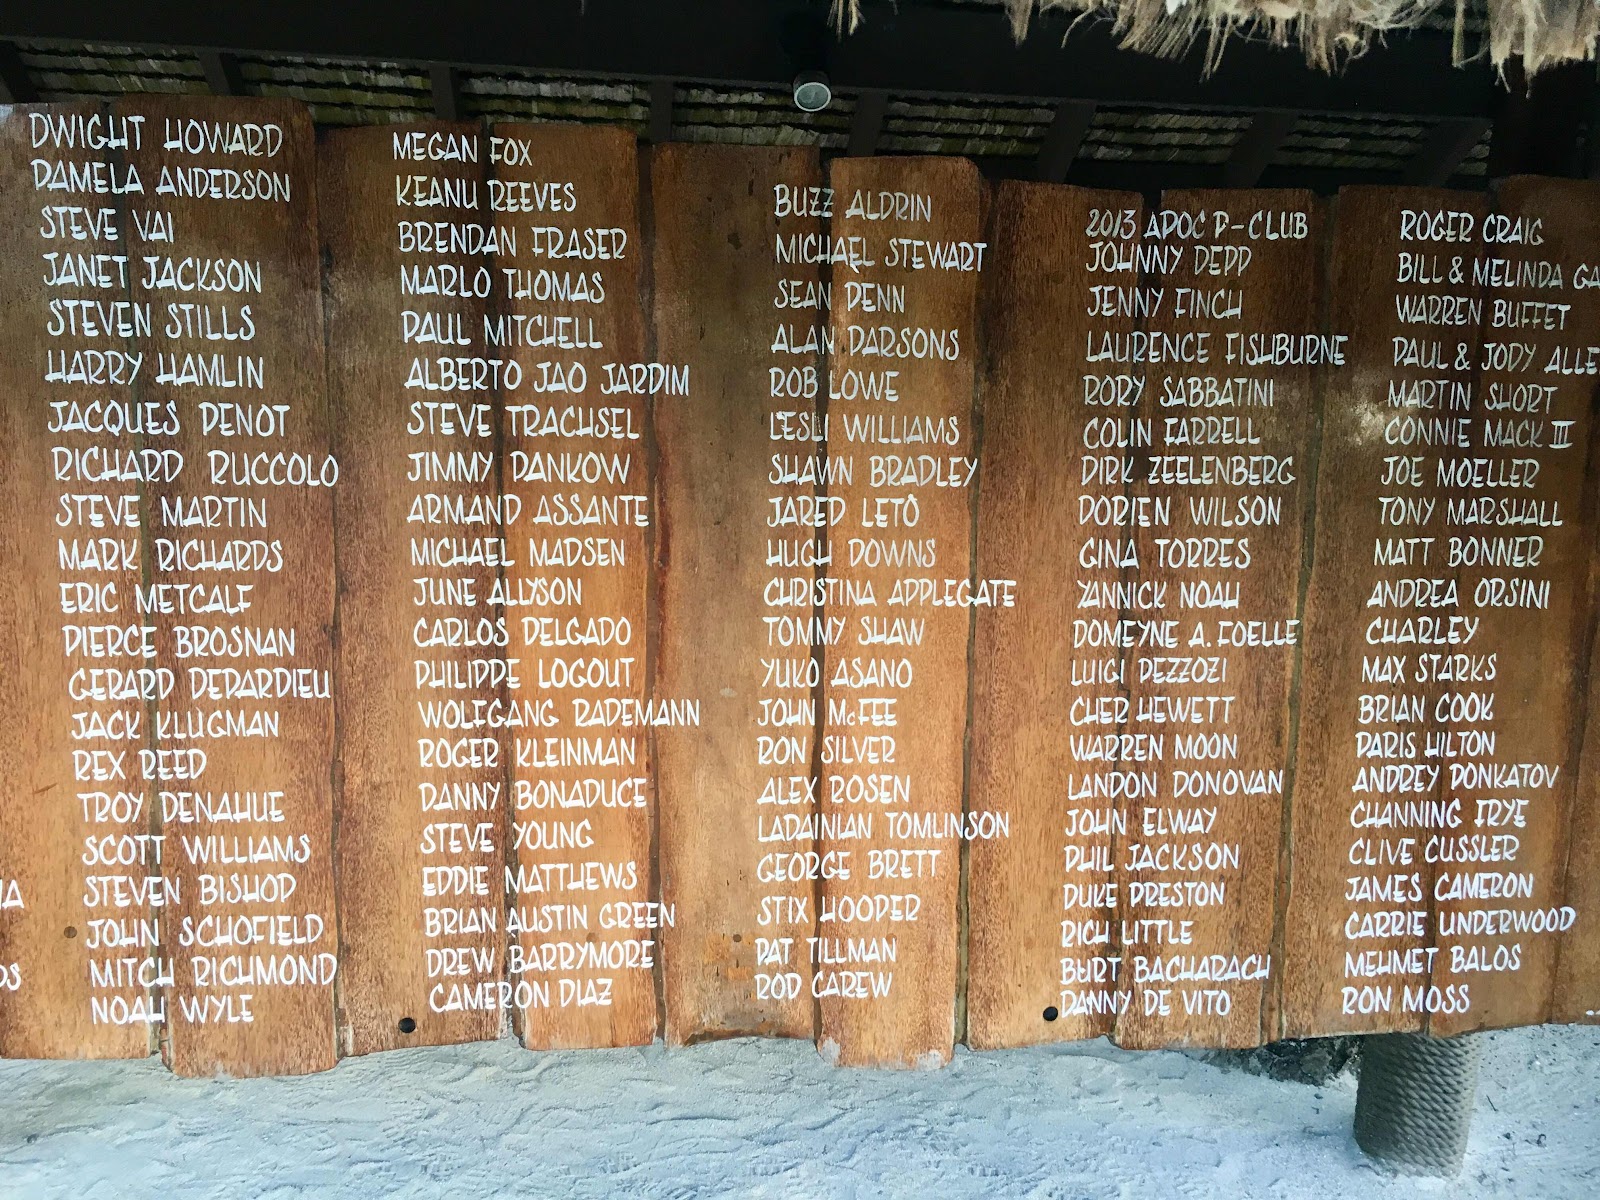 DWIGHT HOWARD
PAMELA ANDERSON
STEVE VAI
JANET JACKSON
STEVEN STILLS
HARRY HAMLIN
JACQUES PENOT
RICHARD RUCCOLO
STEVE MARTIN
MARK RICHARDS
ERIC METCALF
PIERCE BROSNAN
GERARD DEPARDIEU
JACK KLUGMAN
REX REED
TROY DENAHUE
SCOTT WILLIAMS
STEVEN BISHOP
JOHN SCHOFIELD
MITCH RICHMOND
NOAH WYLE
MEGAN FOX
KEANU REEVES
BRENDAN FRASER
MARLO THOMAS
PAUL MITCHELL
ALBERTO JAO JARDIM
STEVE TRACHSEL
JIMMY PANKOW
ARMAND ASSANTE
MICHAEL MADSEN
JUNE ALLYSON
CARLOS DELGADO
PHILIPPE LOGOUT
WOLFGANG RADEMANN
ROGER KLEINMAN
DANNY BONADUCE
STEVE YOUNG
EDDIE MATTHEWS
BRIAN AUSTIN GREEN
DREW BARRYMORE
CAMERON DIAZ
BUZZ ALDRIN
MICHAEL STEWART
SEAN PENN
ALAN PARSONS
ROB LOWE
LESLI WILLIAMS
SHAWN BRADLEY
JARED LETO
HUGH DOWNS
CHRISTINA APPLEGATE
TOMMY SHAW
YUKO ASANO
JOHN McFEE
RON SILVER
ALEX ROSEN
LADAINIAN TOMLINSON
GEORGE BRETT
STIX HOOPER
PAT TILLMAN
ROD CAREW
2013 APOC P-CLUB
JOHNNY DEPP
JENNY FINCH
LAURENCE FISHBURNE
RORY SABBATINI
COLIN FARRELL
DIRK ZEELENBERG
DORIEN WILSON
GINA TORRES
YANNICK NOAH
DOMEYNE A. FOELLE
LUIGI PEZZOZI
CHER HEWETT
WARREN MOON
LANDON DONOVAN
JOHN ELWAY
PHIL JACKSON
DUKE PRESTON
RICH LITTLE
BURT BACHARACH
DANNY DE VITO
ROGER CRAIG
BILL & MELINDA GA
WARREN BUFFET
PAUL & JODY ALLE
MARTIN SHORT
CONNIE MACK III
JOE MOELLER
TONY MARSHALL
MATT BONNER
ANDREA ORSINI
CHARLEY
MAX STARKS
BRIAN COOK
PARIS HILTON
ANDREY DONKATOV
CHANNING FRYE
CLIVE CUSSLER
JAMES CAMERON
CARRIE UNDERWOOD
MEHMET BALOS
RON MOSS